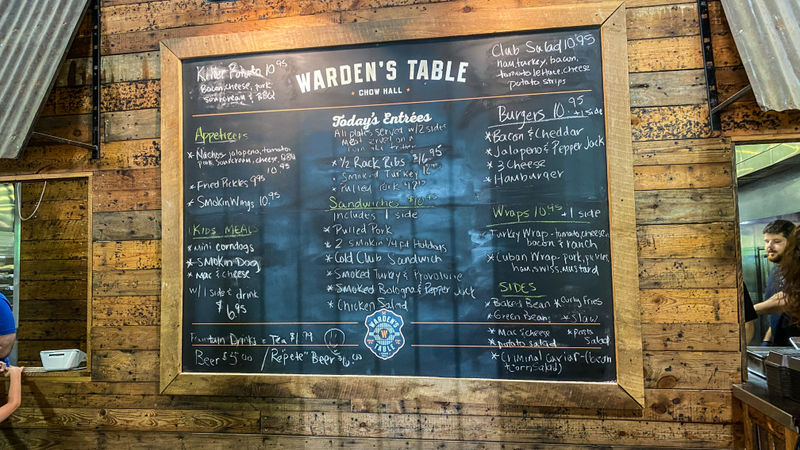 Killer Potato 10.95
Bacon, cheese, pork
sourcream & BBQ
Appetizers
* Nachos - jalapeno, tomato
pork, sourcream, cheese, BBQ
10.95
* Fried Pickles 9.95
* Smokin Wings 10.95
KIDS MEALS
* mini corndogs
* SMOKIN Dog
* mac & cheese
w/ 1 side & drink
$6.95
Fountain Drinks & Tea $1.99
Beer $5.00 / "Repete" Beer $6.00
WARDEN'S TABLE
CHOW HALL
Today's Entrées
All plates served w/ 2 sides
Meat
* 1/2 Rack Ribs $16.95
* Smoked Turkey
* Pulled Pork
Sandwiches $10.95
Includes 1 side
* Pulled Pork
* 2 Smokin' 1/4 lb Hotdogs
* Cold Club Sandwich
* Smoked Turkey & Provolone
* Smoked Bologna & Pepper Jack
* Chicken Salad
WARDEN'S
W
TABLE
Club Salad 10.95
ham, turkey, bacon,
tomato lettuce, cheese
potato strips
Burgers 10.95 + 1 side
* Bacon & Cheddar
* Jalapeno & Pepper Jack
* 3 Cheese
* Hamburger
Wraps 10.95 + 1 side
Turkey Wrap - tomato, cheese,
bacon & ranch
* Cuban Wrap - pork, pickles,
ham, swiss, mustard
SIDES
* Baked Bean * Curly Fries
* Green Beans * Slaw
* Mac & cheese * Pasta
Salad
* potato salad
* Criminal Caviar - (bean
& corn salad)